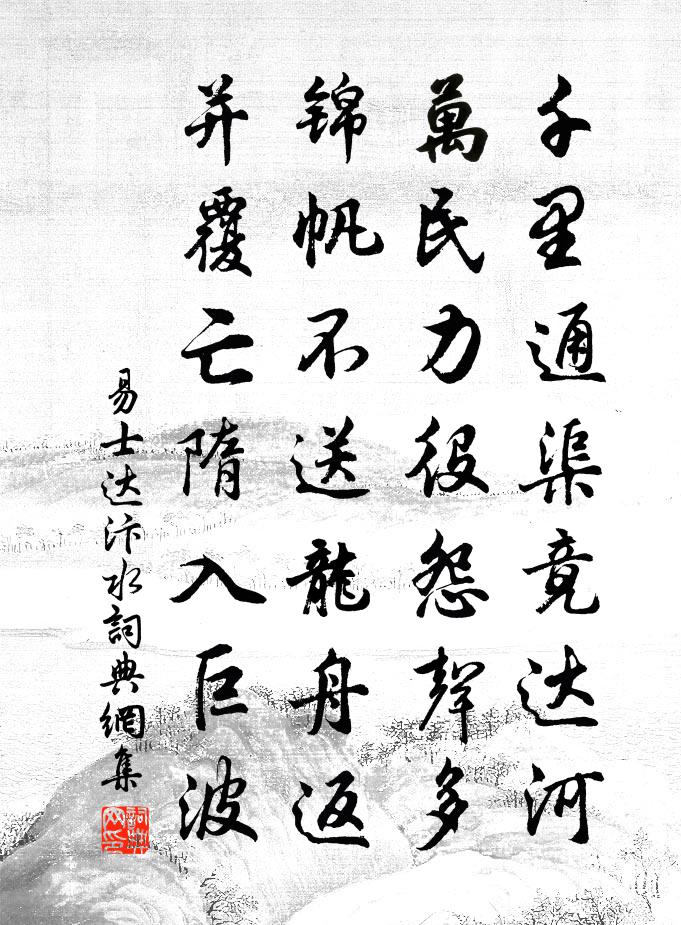 千里通渠竟达河
萬民力役怨聲多
锦帆不送龍舟返
并覆亡隋入巨波
易士达汴水詞典網集
詞典網印